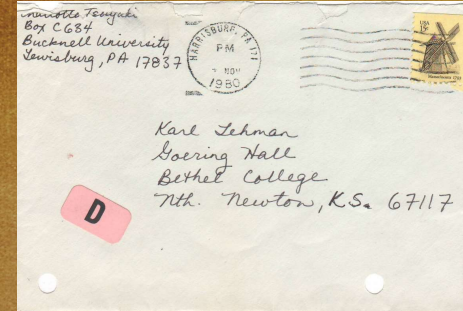 Tsuyuki
Box C684
Bucknell University
Lewisburg, PA 17837
HARRISBURG, PA 171
PM
NOV
1980
USA
15c
Karl Lehman
Goering Hall
Bethel College
Nth. Newton, KS. 67117
D